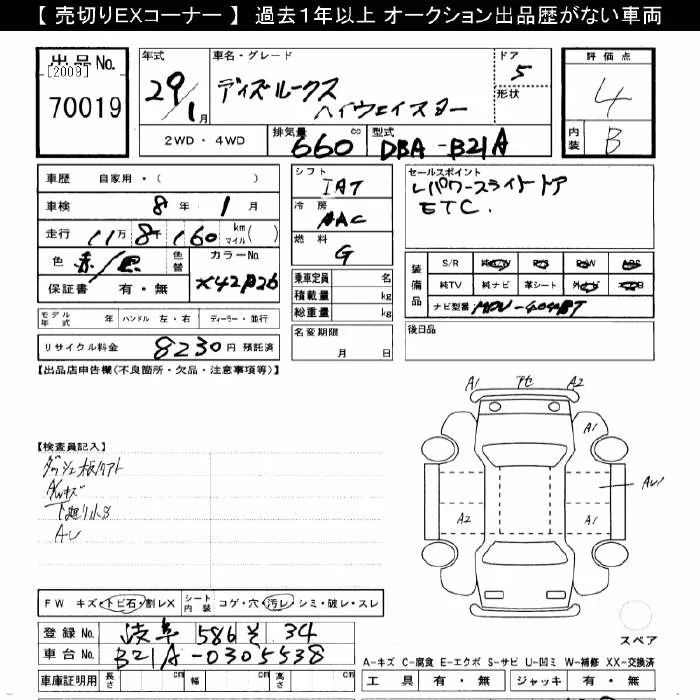 【 売切りEXコーナー 】 過去１年以上 オークション出品歴がない車両
出品No.
[2009]
70019
年式
29/1月
車名・グレード
ディズルークス
ハイウェイスター
ドア
5
形状
評価点
4
内装
B
2WD ・ 4WD
排気量
660cc
型式
DBA-B21A
車歴 自家用・( )
車検 8年 1月
走行 11万8千160 km マイル( )
色 赤/黒 色替
カラーNo. X42P26
保証書 有・無
シフト
IAT
冷房
AAC
燃料
G
乗車定員 名
積載量 kg
総重量 kg
セールスポイント
レパワースライドドア
ETC.
装備品
S/R 純AW P/S P/W ABS
純TV 純ナビ 革シート
ナビ型番
モデル年式 年 ハンドル 左・右 ディーラー・並行
名変期限
月 日
後日品
リサイクル料金 8230円 預託済
【出品店申告欄(不良箇所・欠品・注意事項等)】
A1
A2
A1
AU1
A2
A1
【検査員記入】
AWキズ
下廻り小S
FW キズ・トビ石・割レX シート内装 コゲ・穴・汚レ・シミ・破レ・スレ
登録No. 岐阜 586 そ 34
車台No. B21A-0305538
スペア
A-キズ C-腐食 E-エクボ S-サビ U-凹ミ W-補修 XX-交換済
車庫証明用 長さ cm 幅 cm 高さ cm
工具 有・無 ジャッキ 有・無